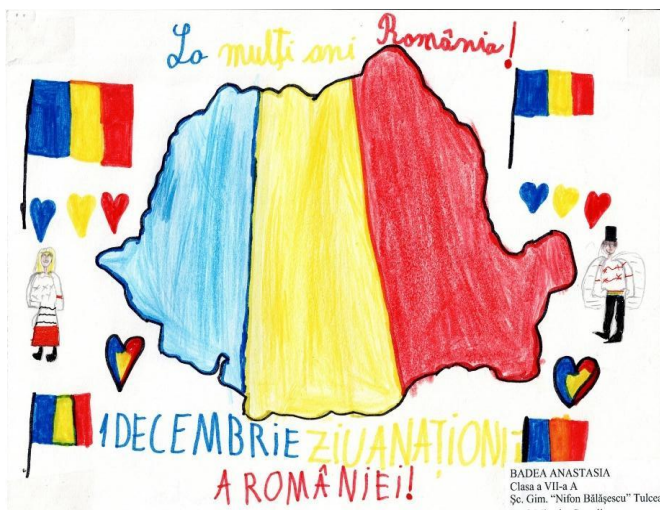 La mulți ani România!
1 DECEMBRIE
A ROMÂNIEI!
BADEA ANASTASIA
Clasa a VII-a A
Șc. Gim. "Nifon Bălășescu" Tulcea